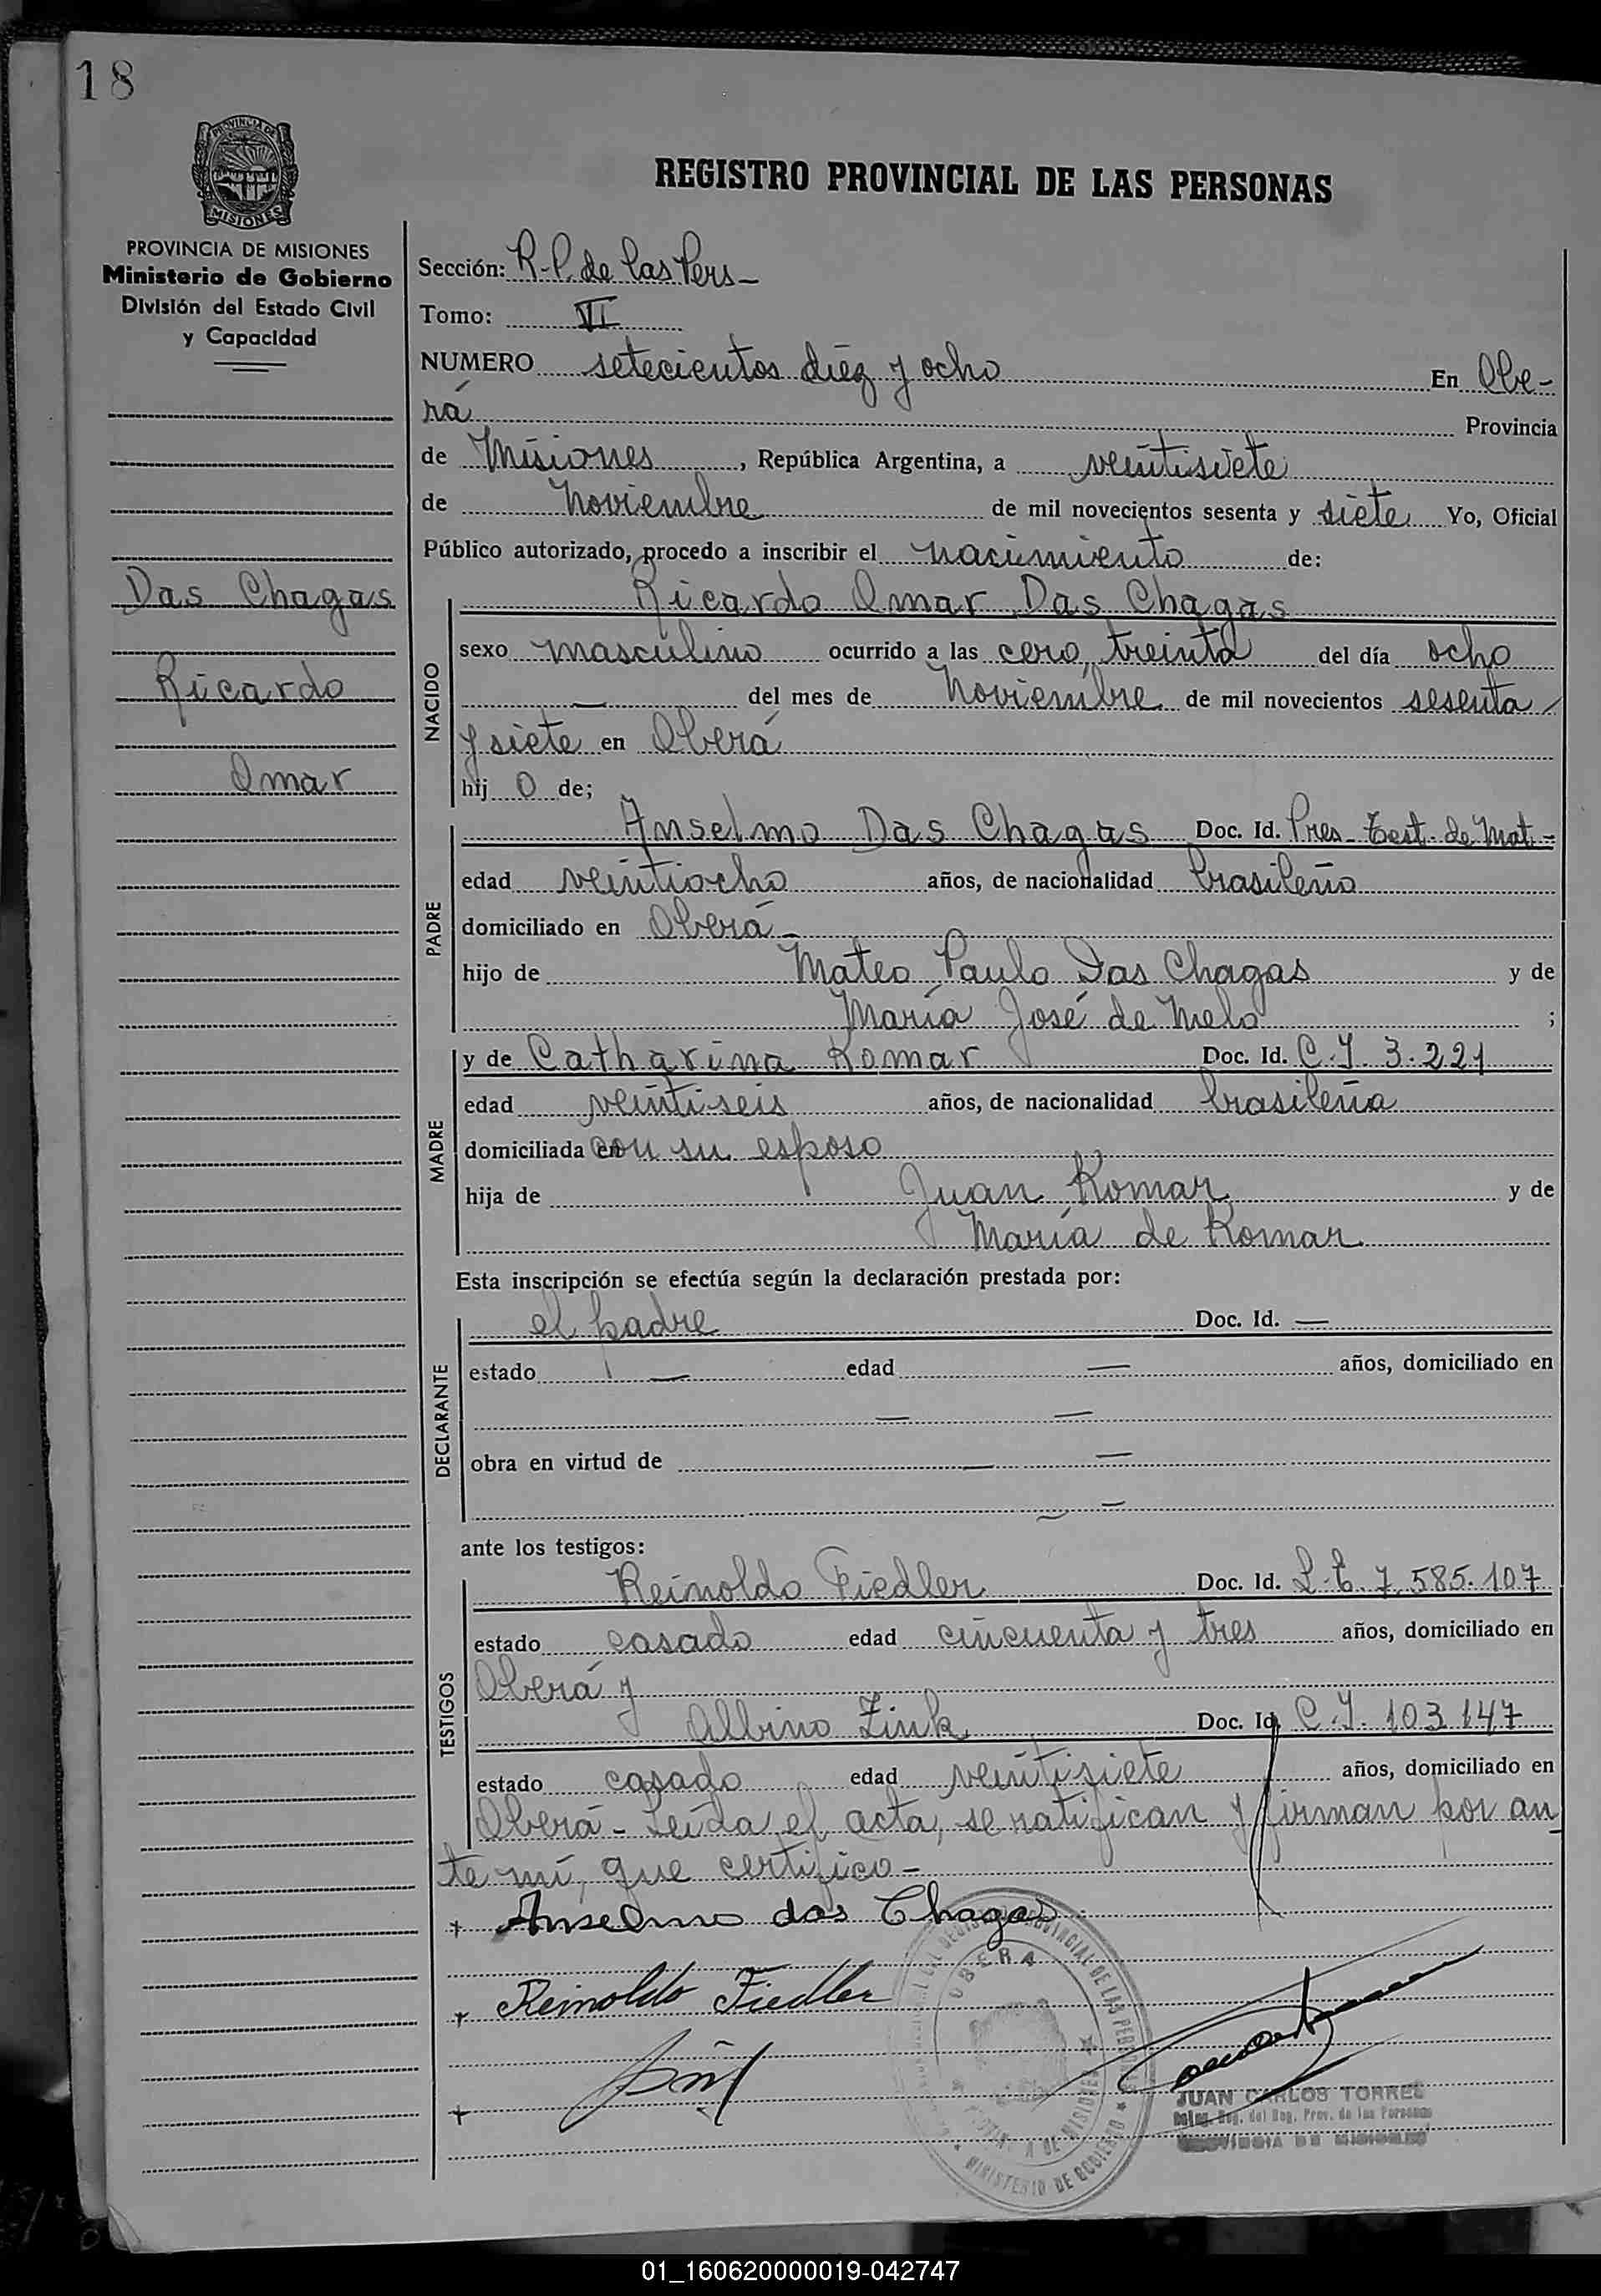 18
PROVINCIA DE
MISIONES
REGISTRO PROVINCIAL DE LAS PERSONAS
PROVINCIA DE MISIONES
Ministerio de Gobierno
División del Estado Civil
y Capacidad
Das Chagas
Ricardo
Omar
Sección: R.P. de las Pers-
Tomo: VI
NUMERO setecientos diez y ocho En Obe-
rá Provincia
de Misiones, República Argentina, a veintisiete
de Noviembre de mil novecientos sesenta y siete Yo, Oficial
Público autorizado, procedo a inscribir el nacimiento de:
NACIDO
Ricardo Omar Das Chagas
sexo masculino ocurrido a las cero, treinta del día ocho
— del mes de Noviembre de mil novecientos sesenta
y siete en Oberá
hij o de;
PADRE
Anselmo Das Chagas Doc. Id. Pres- Test. de Mat-
edad veintiocho años, de nacionalidad brasileño
domiciliado en Oberá-
hijo de Mateo Paulo Das Chagas y de
María José de Melo ;
MADRE
y de Catharina Komar Doc. Id. C.I. 3.221
edad veintiseis años, de nacionalidad brasileña
domiciliada en con su esposo
hija de Juan Komar y de
María de Komar
Esta inscripción se efectúa según la declaración prestada por:
DECLARANTE
el padre Doc. Id. —
estado — edad — años, domiciliado en
— —
obra en virtud de — —
— —
ante los testigos:
TESTIGOS
Reinoldo Fiedler Doc. Id. L.E. 7.585.107
estado casado edad cincuenta y tres años, domiciliado en
Oberá y
Albino Zink Doc. Id. C.I. 103.147
estado casado edad veintisiete años, domiciliado en
Oberá- Leída el acta, se ratifican y firman por an
te mí, que certifico-
+ Anselmo das Chagas
+ Reinoldo Fiedler
+
OBERA
MINISTERIO DE GOBIERNO
JUAN CARLOS TORRES
Reg. del Reg. Prov. de las Personas
PROVINCIA DE MISIONES
01_160620000019-042747